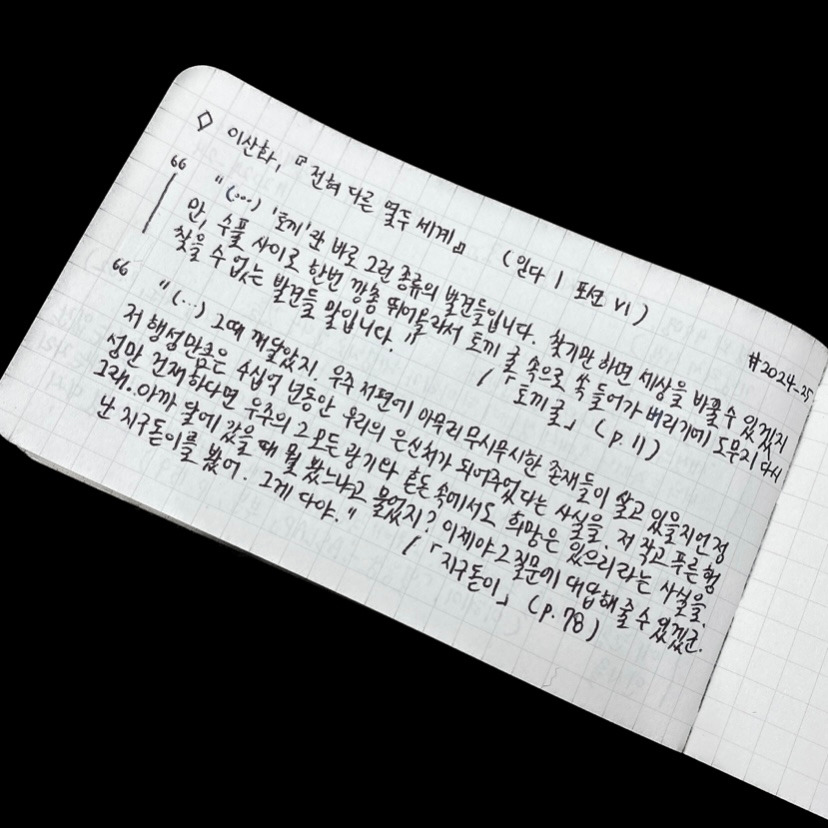 ◇ 이산화, 『전혀 다른 열두 세계』 (읻다 | 포션 VI)
#2024_25
“ "(...) '토끼'란 바로 그런 종류의 발견들입니다. 찾기만 하면 세상을 바꿀 수 있겠지
만, 수풀 사이로 한번 깡총 뛰어올라서 토끼 굴 속으로 쏙 들어가 버리기에 도무지 다시
찾을 수 없는 발견들 말입니다." /「토끼 굴」 (p.11)
“ "(...) 그때 깨달았지. 우주 저편에 아무리 무시무시한 존재들이 살고 있을지언정
저 행성만큼은 수십억 년동안 우리의 은신처가 되어주었다는 사실을. 저 작고 푸른 행
성만 건재하다면 우주의 그 모든 광기와 혼돈 속에서도 희망은 있으리라는 사실을.
그래. 아까 달에 갔을 때 뭘 봤느냐고 물었지? 이제야 그 질문에 대답해 줄 수 있겠군.
난 지구돋이를 봤어. 그게 다야." /「지구돋이」 (p.78)